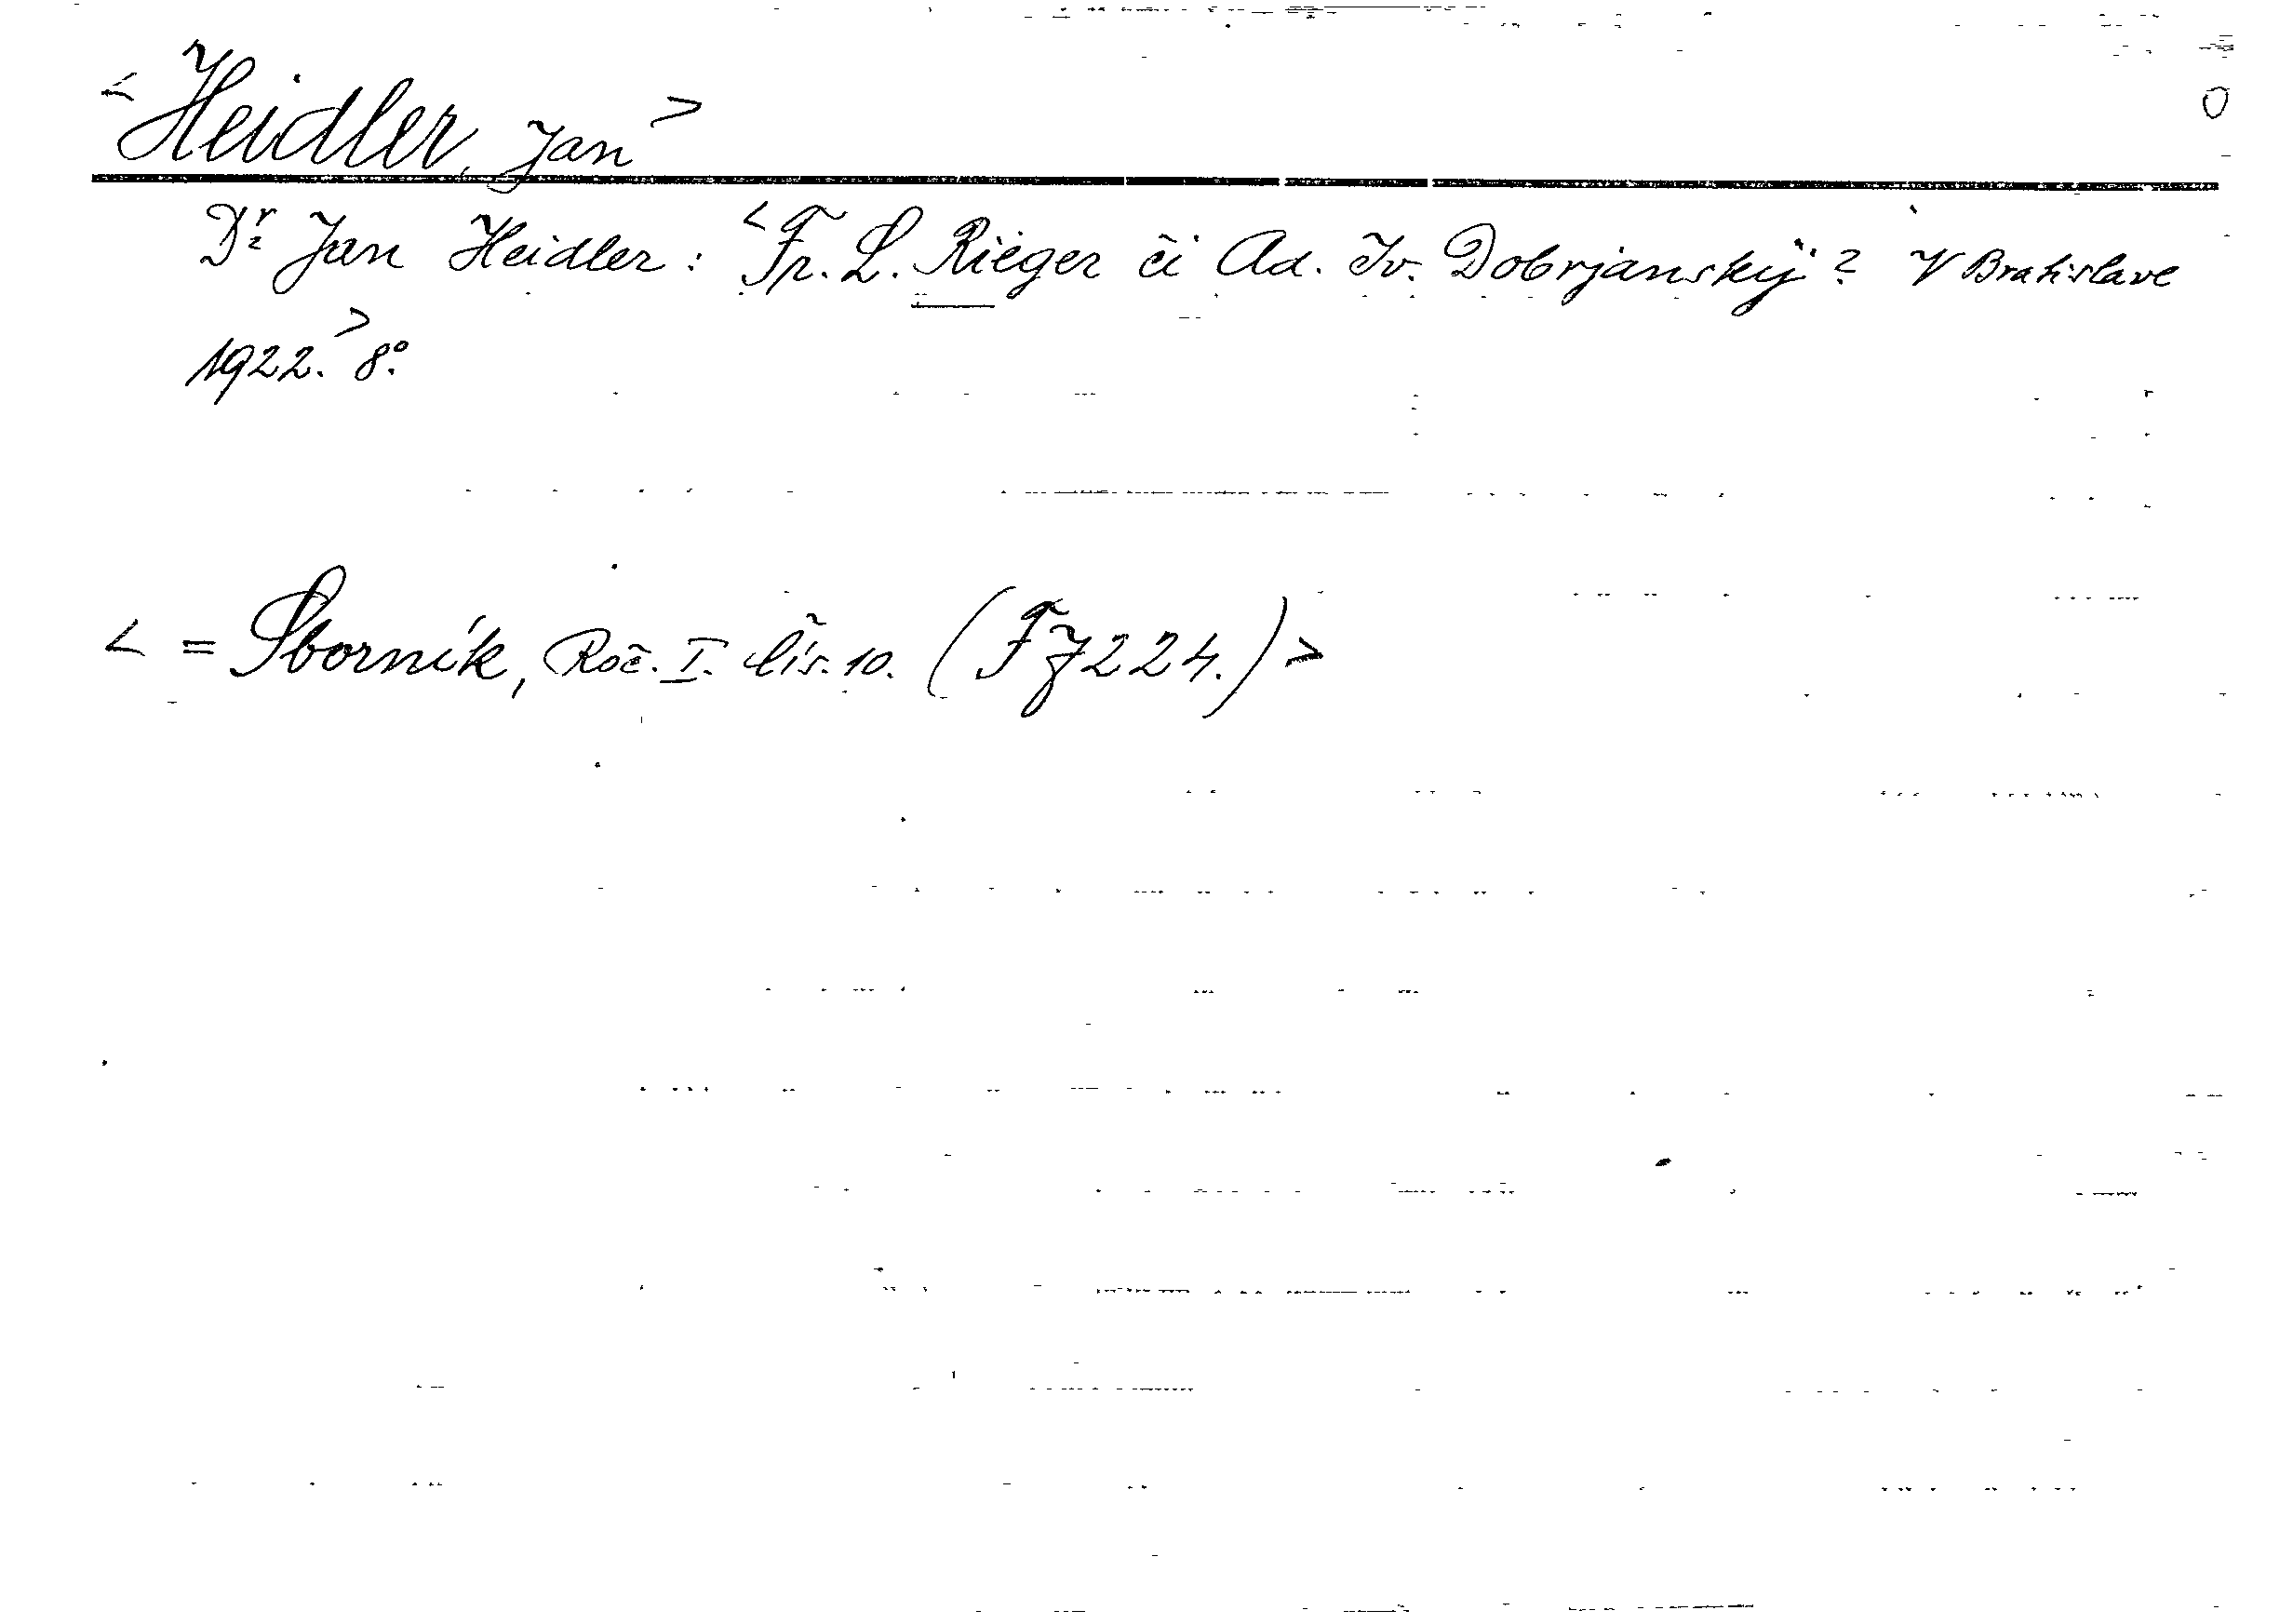 <Heidler, Jan> O
Dr. Jan Heidler: <Fr. L. Rieger či Ad. Iv. Dobrjanský? V Bratislave
1922.> 8°.
< = Sborník, Roč. I. Čís. 10. (Fj 224.) >